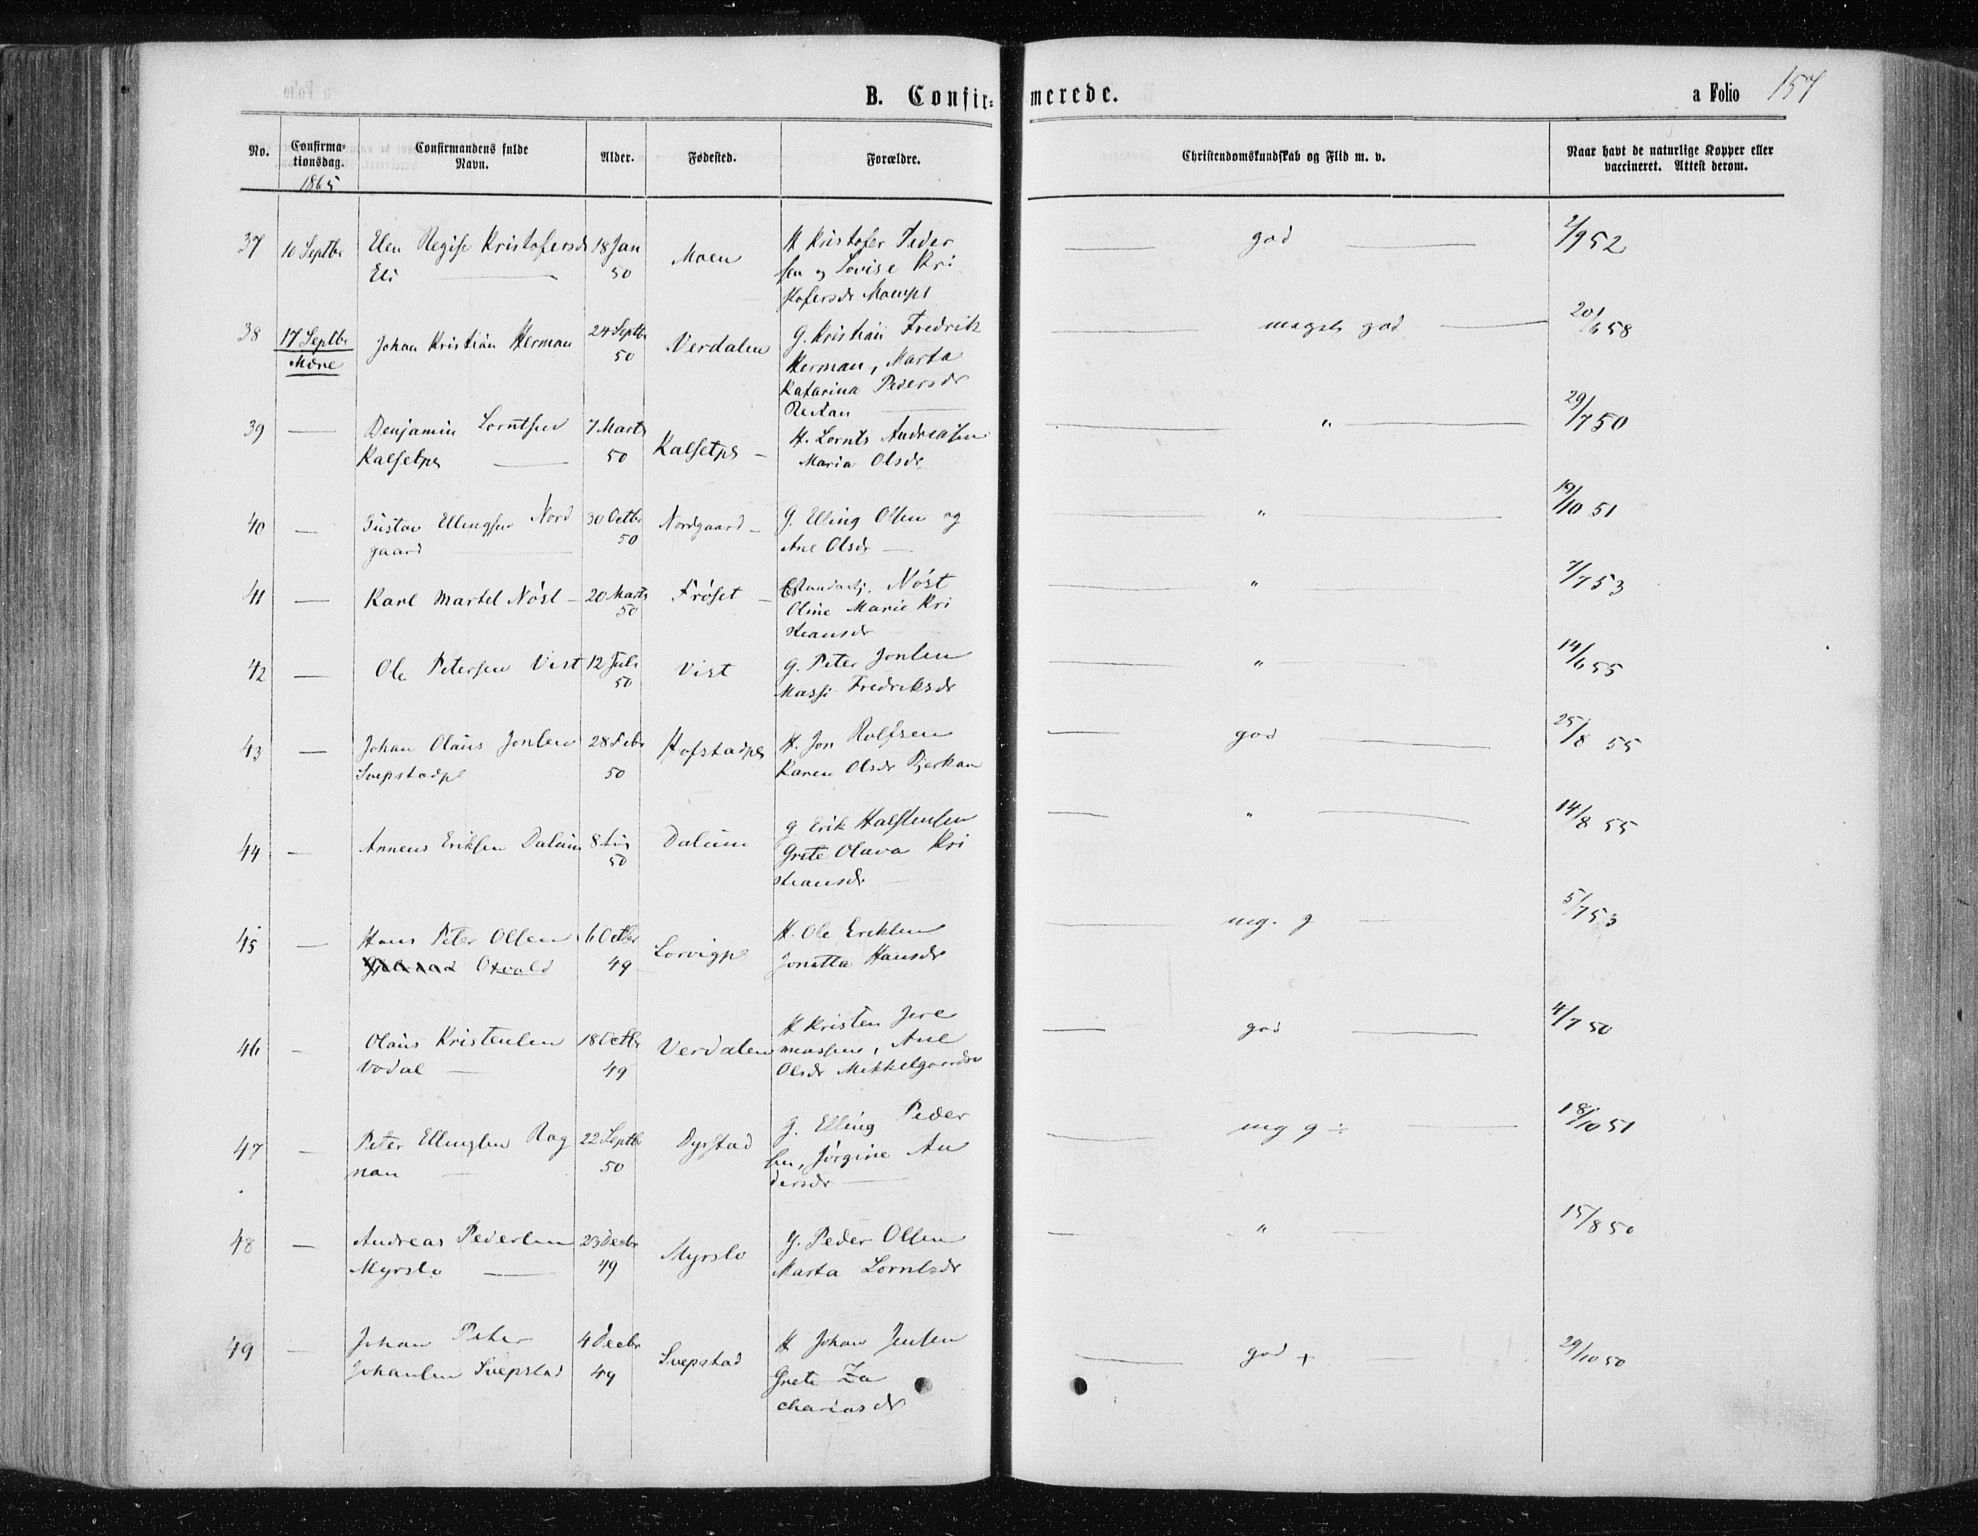 B. Confir= merede.
a Folio 157
No.
Confirma-
tionsdag.
1865
Confirmandens fulde
Navn.
Alder.
Fødested.
Forældre.
Christendomskundskab og Flid m. v.
Naar havt de naturlige Kopper eller
vaccineret. Attest derom.
37 10 Septbr Elen Kristofersdr 18 Jan Moen H Kristofer Peder god 2/9 52
Eli 50 sen og Lovise Kri
stofersdr
38 17 Septbr Johan Kristian Herman 24 Septbr Verdalen G. Kristian Fredrik meget god 20/6 58
Mære 50 Herman, Marta
Katarina Pedersdr
39 — Benjamin Lorntsen 7 Marts Kalsetpl — H. Lornts Andreasen " 29/7 50
Kalsetpl — 50 Maria Olsdr
40 — Gustav Ellingsen Nord 30 Octbr Nordgaard — G. Elling Olsen og " 19/10 51
gaard — 50 Ane Olsdr —
41 — Karl Martel Nøst — 20 Marts Frøset — Nøst " 7/7 53
50 Oline Marie Kri
stiansdr
42 — Ole Petersen Vist 12 Juli Vist G. Peter Jonsen " 14/6 55
50 Massi Fredriksdr
43 — Johan Olaus Jonsen 28 Febr Hofstadpl H. Jon Rolfsen god 25/8 55
Svepstadpl 50 Karen Olsdr Bjerkan
44 — Anneus Eriksen Dalum 8 Aug Dalum G Erik Halstensen " 14/8 55
50 Grete Olava Kri
stiansdr —
45 — Hans Peter Olsen 6 Octbr Lorvigpl H. Ole Eriksen mg. g 5/7 53
Oxvold 49 Jonetta Hansdr
46 - Olaus Kristensen 18 Octbr Verdalen H Kristen Jere god 4/7 50
Vodal — 49 miassen, Ane
Olsdr
47 - Peter Ellingsen Rag 22 Septbr Dyrstad G. Elling Peder mg g ÷ 18/10 51
nan — 50 sen, Jørgine An
dersdr —
48 — Andreas Pedersen 23 Decbr Myrslo G. Peder Olsen " 15/8 50
Myrslo — 49 Marta Lorntsdr
49 — Johan Peter 4 Decbr Svepstad H Johan Jensen god + 29/10 50
Johansen Svepstad 49 Grete Za
chariasdr